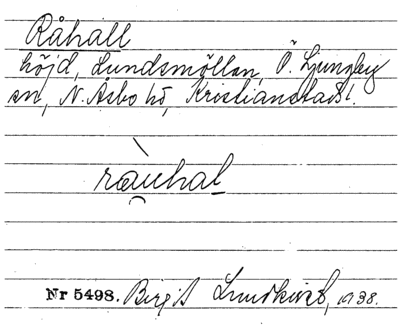 Råhall
höjd, Lundsmöllan, Ö. Ljungby
sn, N. Åsbo hd, Kristianstads l.
ràu̯hal
Nr 5498. Birgit Lundkvist, 1938.